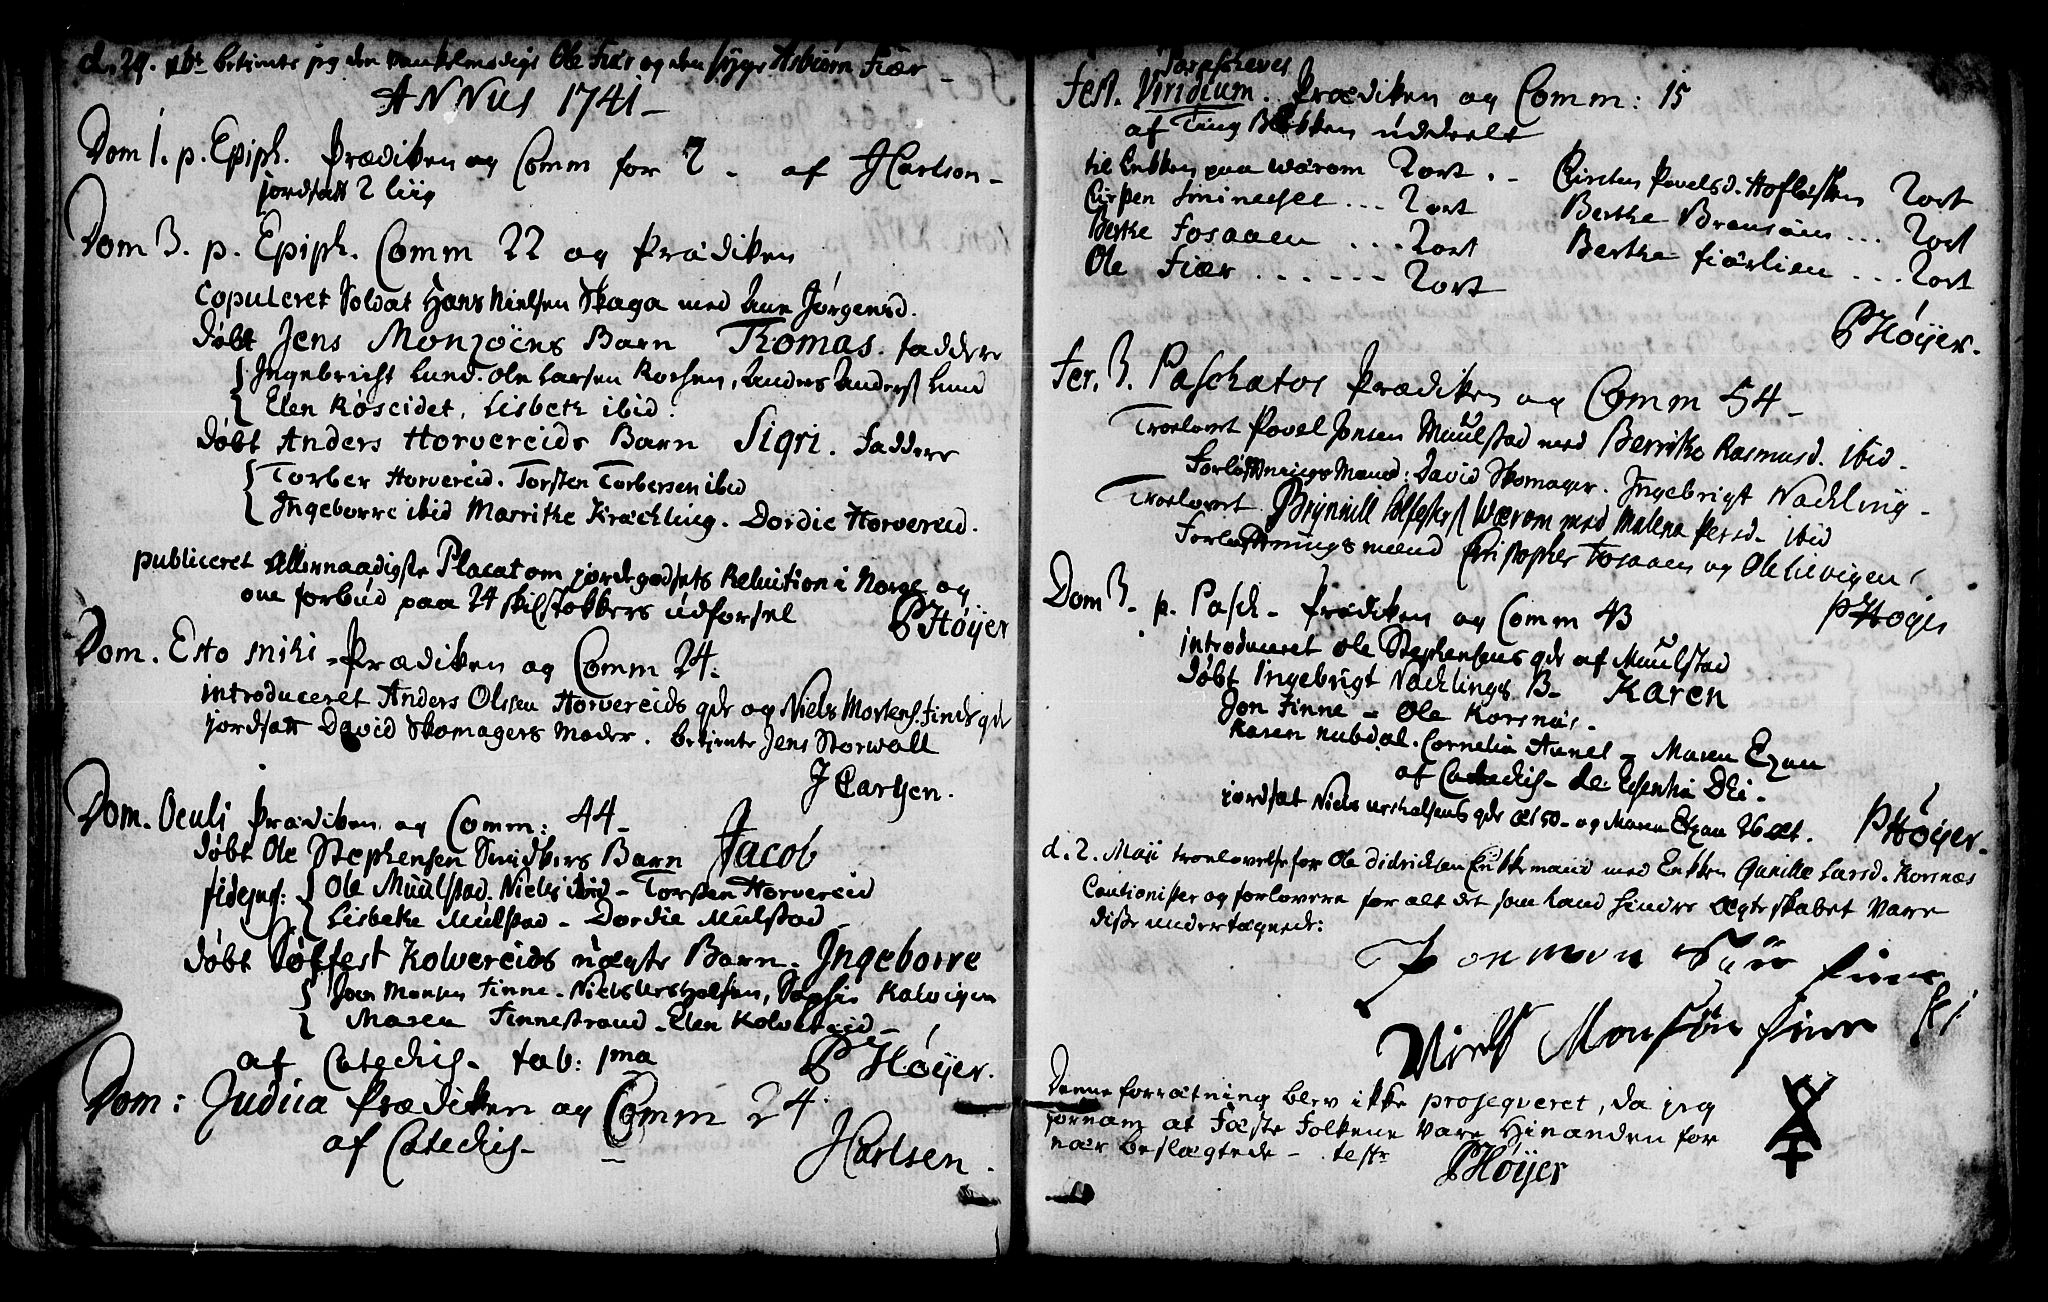 d. 29. xbr betiente jeg den vankelmodige Ole Fiær og den syge Asbiørn Fiær
ANNUS 1741
Dom 1. p. Epiph. Prædiken og Comm for 2 - af J Carlsen
jordsatt 2 liig
Dom 3. p. Epiph. Comm 22 og Prædiken
Copuleret Soldat Hans Nielsen Skaga med Ane Jørgensd.
døbt Jens Monsøens Barn Thomas. faddere
Ingebricht Lund. Ole Larsen Rochsen, Anders Anders. Lund
Elen Røseidet, Lisbeth ibid.
døbt Anders Horvereids Barn Sigri. faddere
Torber Horvereid. Torsten Torbersen ibid
Ingeborre ibid Marrithe Krækling. Dordie Horvereid.
publiceret Allernaadigste Placat om jordegodsets Reluition i Norge og
om forbud paa 24 skilstøkkers udførsel
P Høyer
Dom. Esto mihi - Prædiken og Comm 24.
introduceret Anders Olssen Horvereids qde og Niels Mortens. Finde qde
jordsatt David Skomagers Moder. betiente Jens Storvall
J Carlsen.
Dom. Oculi Prædiken og Comm: 44
døbt Ole Stephensen Barn Jacob
fidejus: Ole Muulstad. Niels ibid - Torsten Horvereid
Lisbeke Mulstad - Dordie Mulstad
døbt Solfest Kolvereids uægte Barn. Ingeborre
Joen Monsen Finne - Niels Urskolsen, Sophie Kalvigen
Maren Finnestrand - Elen Kolvereid
af Catechis - tab: 1ma P Høyer.
Dom: Judica Prædiken og Comm 24.
af Catechis - J Carlsen.
Parascheves
Fest. Viridium. Prædiken og Comm: 15
af Ting Bøkken uddeelt
til Enkken paa Wærom 2 ort. - Cirsten Povelsd. Hoflessken 2 ort
Cirsten 2 ort Berthe Bransøen ... 2 ort
Berthe Fosaaen ... 2 ort Berthe Fiærlien ... 2 ort
Ole Fiær ...... 2 ort
P Høyer.
Fer. 3. Paschatos Prædiken og Comm 54
Troelovet Povel Jonsen Muulstad med Berrithe Rasmusd. ibid
Forløftnings Mænd: David Skomager. Ingebrigt Nachling
Troelovet Brynnild Solfests. Wærom med Malena Persd. ibid
Forløftnings mænd Christopher Fosaaen og Ole Lievigen
Dom 3. p. Pasch - Prædiken og Comm 43 P Høyer
introduceret Ole Stephensens qde af Muulstad
døbt Ingebrigt Nachlings B. Karen
Jon Finne - Ole Korsnæs.
Karen Nubdal. Cornelia Aunet - Maren Ezau
af Catechis - de Essentia Dei.
jordsat Niels Urskolsens qde æt 50 - og Maren Ezau 26 æt. P Høyer.
d. 2. Maji troelovelse for Ole Didrichsen Enkkemand med Enkken Gunille Larsd. Korsnæs
Cautionister og forlovere for alt det som kand hindre ægteskabet vare
disse undertegnede:
Jon mon Søn finne
Niels Monsøn finne
Denne forrætning blev ikke proseqveret, da jeg
fornam at Fæste Folkene vare Hinanden for
nær beslægtede - testr P Høyer